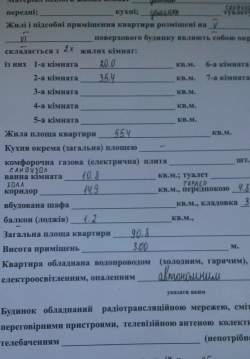 передні; кухні;
Жилі і підсобні приміщення квартири розміщені на V
VI поверхового будинку являють собою окр
складається з 2х жилих кімнат:
із них 1-а кімната 20.0 кв.м. 6-а кімната
2-а кімната 35.4 кв.м. 7-а кімната
3-а кімната кв.м.
4-а кімната кв.м.
5-а кімната кв.м.
Жила площа квартири 55.4 кв.м.
Кухня окрема (загальна) площею кв.м.
комфорочна газова (електрична) плита шт.
санвузол
ванна кімната 10.8 кв.м.; туалет
хола
коридор 14.9 кв.м., передпокою 4.8
вбудована шафа кв.м., кладовка 3
балкон (лоджія) 1.2 кв.м.,
Загальна площа квартири 90.8 кв.м.
Висота приміщень 3.00 м.
Квартира обладнана водопроводом (холодним, гарячим),
електроосвітленням, опаленням автономним
указати яким
Будинок обладнаний радіотрансляційною мережею, сміт
переговорними пристроями, телевізійною антеною колекти
телебаченням (непотрібно